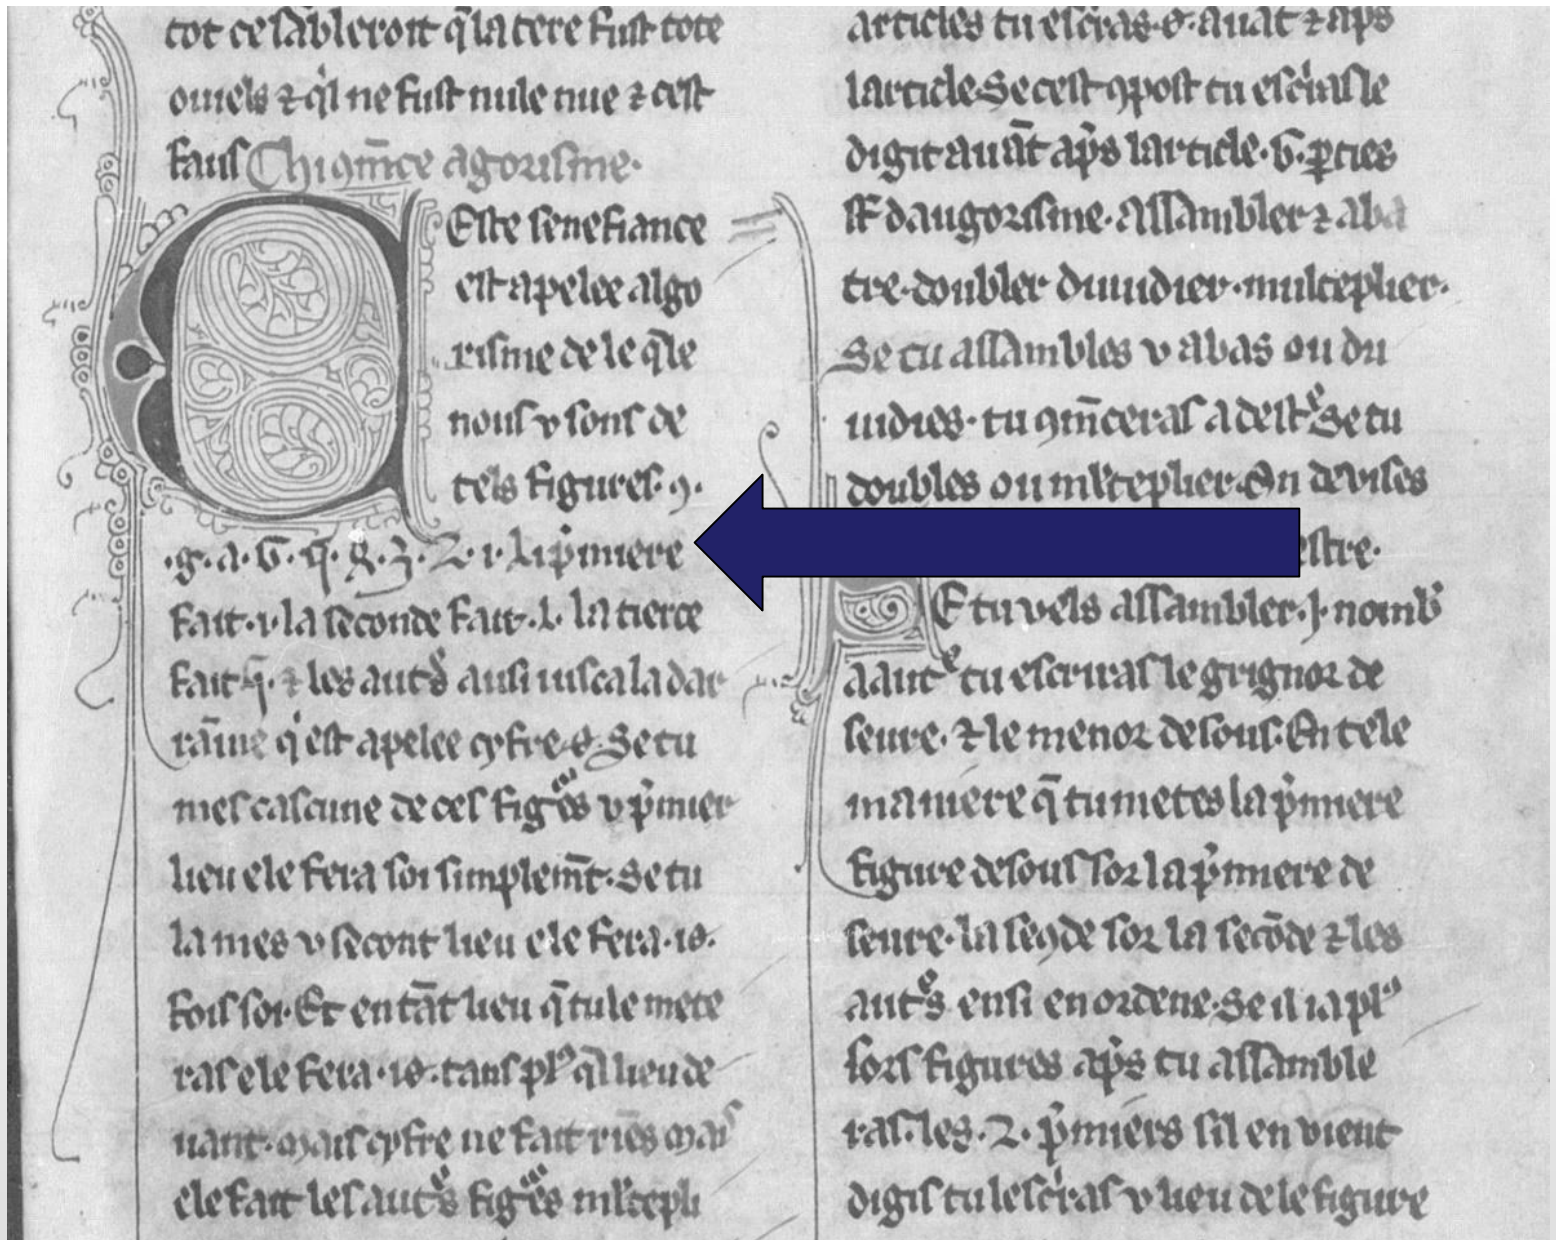 tot ce sābleroit q̄ la tere fust tote
ouiels ⁊ q'l ne fust nule nue ⁊ cest
faus Chi ꝯm̄ce agorisme·
Ceste senefiance
est apelee algo
risme de le q̄le
nous v sons de
tels figures· 9·
·8·a·6·q·ꝝ·3·2·1· li p'miere
fait·1· la seconde fait·2· la tierce
fait 3· ⁊ les autˢ ausi iusca la dar
raīne q' est apelee cyfre·0· Se tu
mes cascune de ces figˢes v p'mier
lieu ele fera soi simplem̄t· Se tu
la mes v secont lieu ele fera·10·
fois soi· Et en tāt lieu q̄ tu le mete
ras ele fera·10· tans plꝰ q̄l lieu de
uant· mais cyfre ne fait riēs mais
ele fait les autˢs figˢes mlteplı
articles tu escˢras·0· auāt ⁊ ap's
larticle Se cest ꝯpost tu esc'ras le
digit auāt ap's larticle·6·ꝑties
sſ daugorisme· assambler ⁊ aba
tre· doubler diuudier· multeplier·
Se tu assambles v abas ou du
uidies· tu ꝯm̄ceras a destˢ Se tu
doubles ou mlteplier· On deuises
estre·
SE tu vels assambler·1· nomb'
a autˢ tu escriras le grignor de
seure· ⁊ le menor desous· En tele
maniere q̄ tu metes la p'miere
figure desous sor la p'miere de
seure· la seꝯde sor la secōde ⁊ les
autˢs ensi en ordene· Se il i a plꝰ
sors figures ap's tu assamble
ras· les·2· p'miers sil en vient
digis tu lesc'ras v lieu de le figure